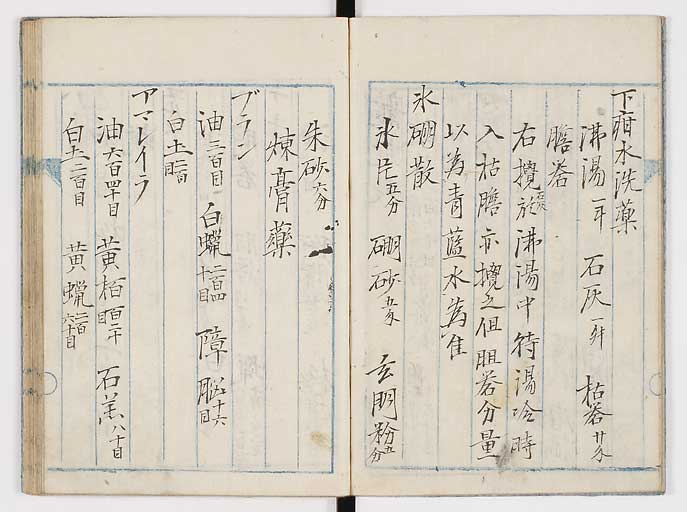 下疳水洗薬
沸湯 一斗 石灰 一升 枯礬 廿久
膽礬
右攪旋沸湯中待湯冷時
入枯膽亦攪之但胆礬分量
以為青藍水為准
氷硼散
氷片 五分 硼砂 五久 玄明粉 五分
朱砂 六分
煉膏薬
ブラン
油 三百目 白蝋 二百四十目 障脳 十六目
白土 百目
アマレイラ
油 六百四十目 黄栢 百二十目 石羔 八十目
白土 二百目 黄蝋 二百六十目